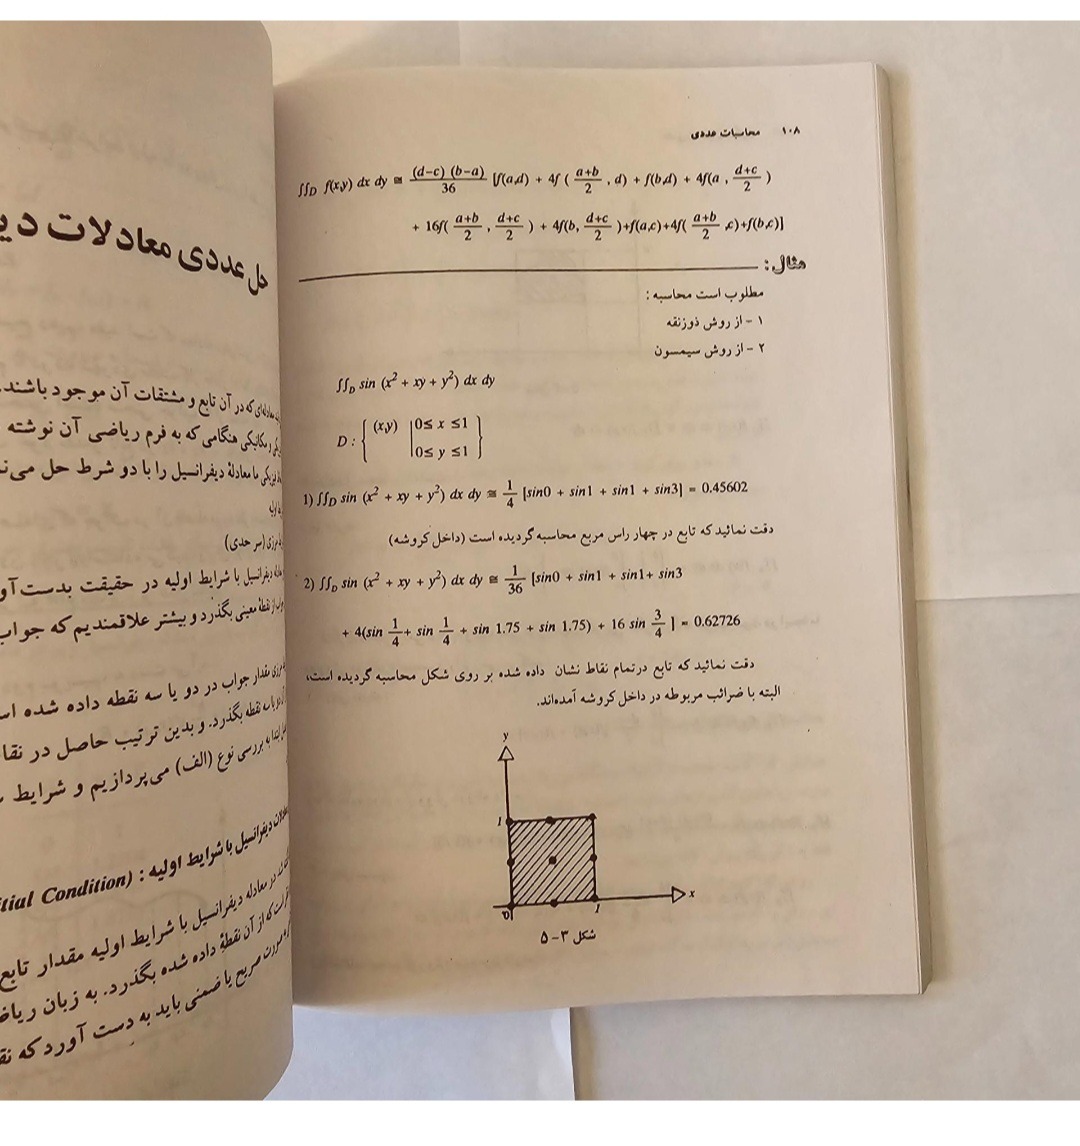 ۱۰۸ محاسبات عددی
∫∫D f(x,y) dx dy ≅ (d-c) (b-a)/36 [f(a,d) + 4f ( a+b/2 , d) + f(b,d) + 4f(a , d+c/2 )
+ 16f( a+b/2 , d+c/2 ) + 4f(b, d+c/2 )+f(a,c)+4f( a+b/2 ,c)+f(b,c)]
مثال:
مطلوب است محاسبه :
۱ - از روش ذوزنقه
۲ - از روش سیمسون
∫∫D sin (x² + xy + y²) dx dy
D : { (x,y) | 0≤ x ≤1
0≤ y ≤1 }
1) ∫∫D sin (x² + xy + y²) dx dy ≅ 1/4 [sin0 + sin1 + sin1 + sin3] = 0.45602
دقت نمائید که تابع در چهار راس مربع محاسبه گردیده است (داخل کروشه)
2) ∫∫D sin (x² + xy + y²) dx dy ≅ 1/36 [sin0 + sin1 + sin1+ sin3
+ 4(sin 1/4 + sin 1/4 + sin 1.75 + sin 1.75) + 16 sin 3/4 ] = 0.62726
دقت نمائید که تابع درتمام نقاط نشان داده شده بر روی شکل محاسبه گردیده است،
البته با ضرائب مربوطه در داخل کروشه آمده‌اند.
y
1
0
1
x
شکل ۳-۵
حل عددی معادلات
معادله‌ای که در آن تابع و مشتقات آن موجود باشند.
مکانیکی هنگامی که به فرم ریاضی آن نوشته
ما معادلهٔ دیفرانسیل را با دو شرط حل
اولیه
مرزی (سر حدی)
دیفرانسیل با شرایط اولیه در حقیقت بدست
از نقطهٔ معینی بگذرد و بیشتر علاقمندیم که جواب
مقدار جواب در دو یا سه نقطه داده شده
دو یا سه نقطه بگذرد. و بدین ترتیب حاصل در
ابتدا به بررسی نوع (الف) می‌پردازیم و شرایط
دیفرانسیل با شرایط اولیه : (Condition
در معادله دیفرانسیل با شرایط اولیه مقدار تابع
که از آن نقطهٔ داده شده بگذرد. به زبان
صورت صریح یا ضمنی باید به دست آورد که